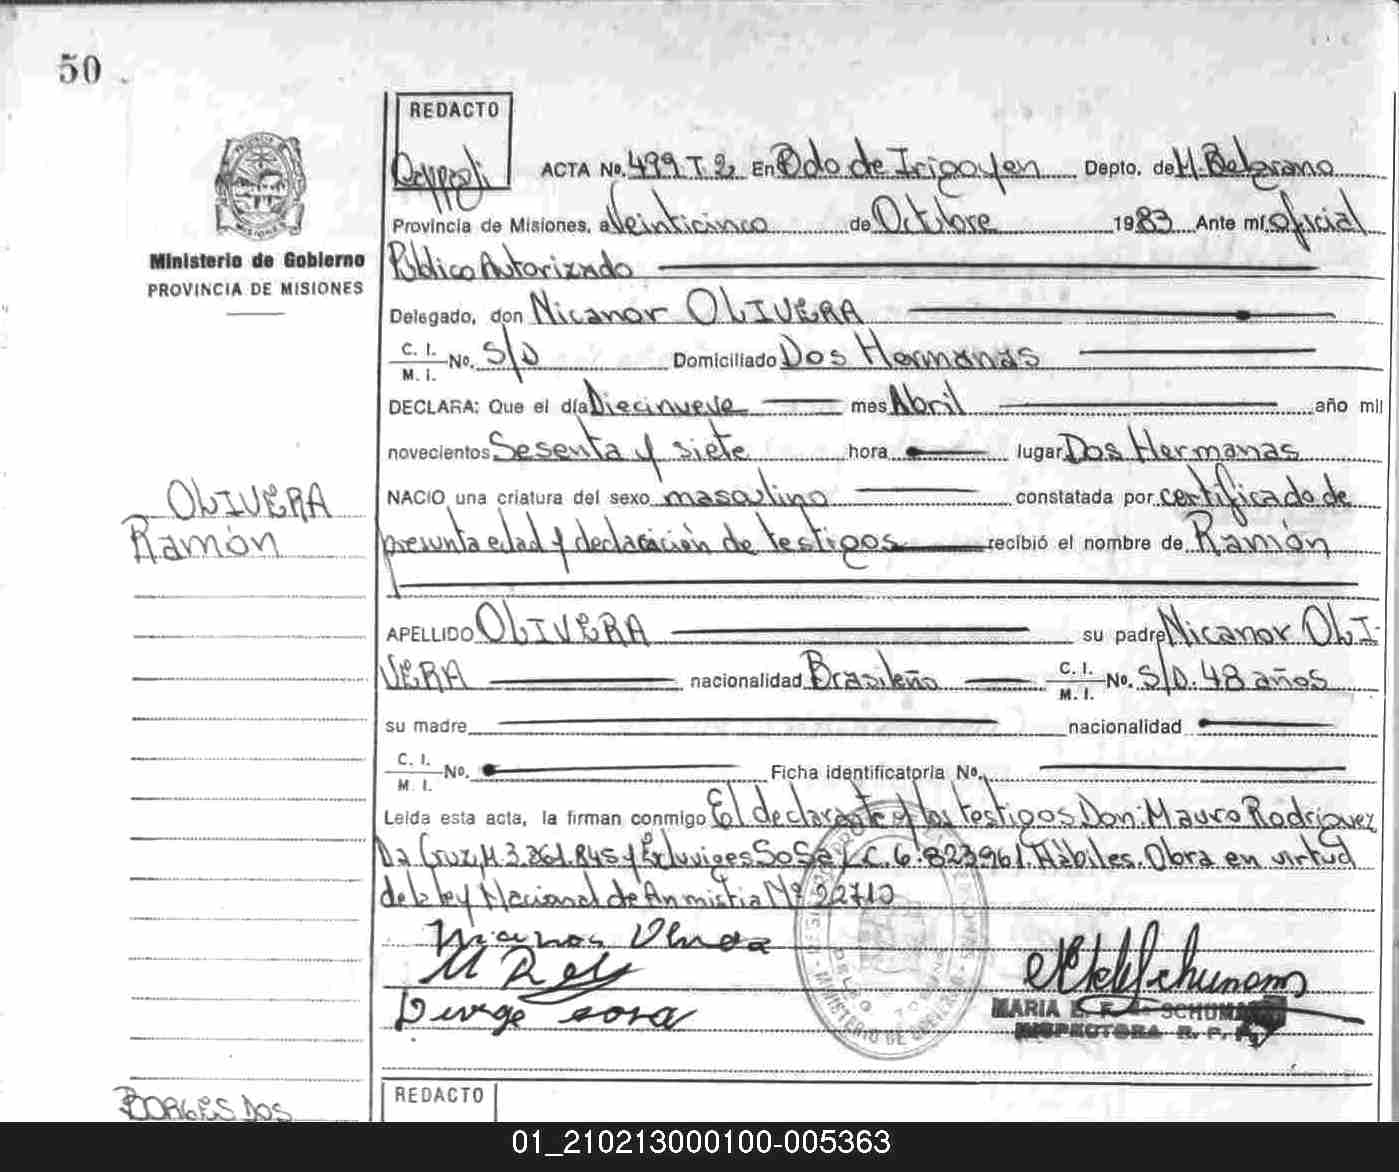 50
REDACTO
ACTA No. 499.T.2 En Bdo de Irigoyen Depto. de M. Belgrano
Provincia de Misiones, a Veinticinco de Octubre 1983 Ante mí, Oficial
Público Autorizado
Ministerio de Gobierno
PROVINCIA DE MISIONES
Delegado, don Nicanor OLIVERA
C. I. M. I. No. S/D Domiciliado Dos Hermanas
DECLARA: Que el día Diecinueve mes Abril año mil
novecientos Sesenta y siete hora lugar Dos Hermanas
NACIO una criatura del sexo masculino constatada por certificado de
OLIVERA
Ramón
presunta edad y declaración de testigos recibió el nombre de Ramón
APELLIDO OLIVERA su padre Nicanor OLI-
VERA nacionalidad Brasileño C. I. M. I. No. S/D. 48 años
su madre nacionalidad
C. I. M. I. No. Ficha identificatoria No.
Leída esta acta, la firman conmigo El declarante y los testigos Don: Mauro Rodriguez
Da Cruz, M. 3.861.845 y Sosa L.C. 6.823961. Hábiles. Obra en virtud
de la ley Nacional de Anmistia Nº 22710
MARIA E. F. SCHUMA
INSPECTORA R. P. P.
REDACTO
BORGES DOS
01_210213000100-005363